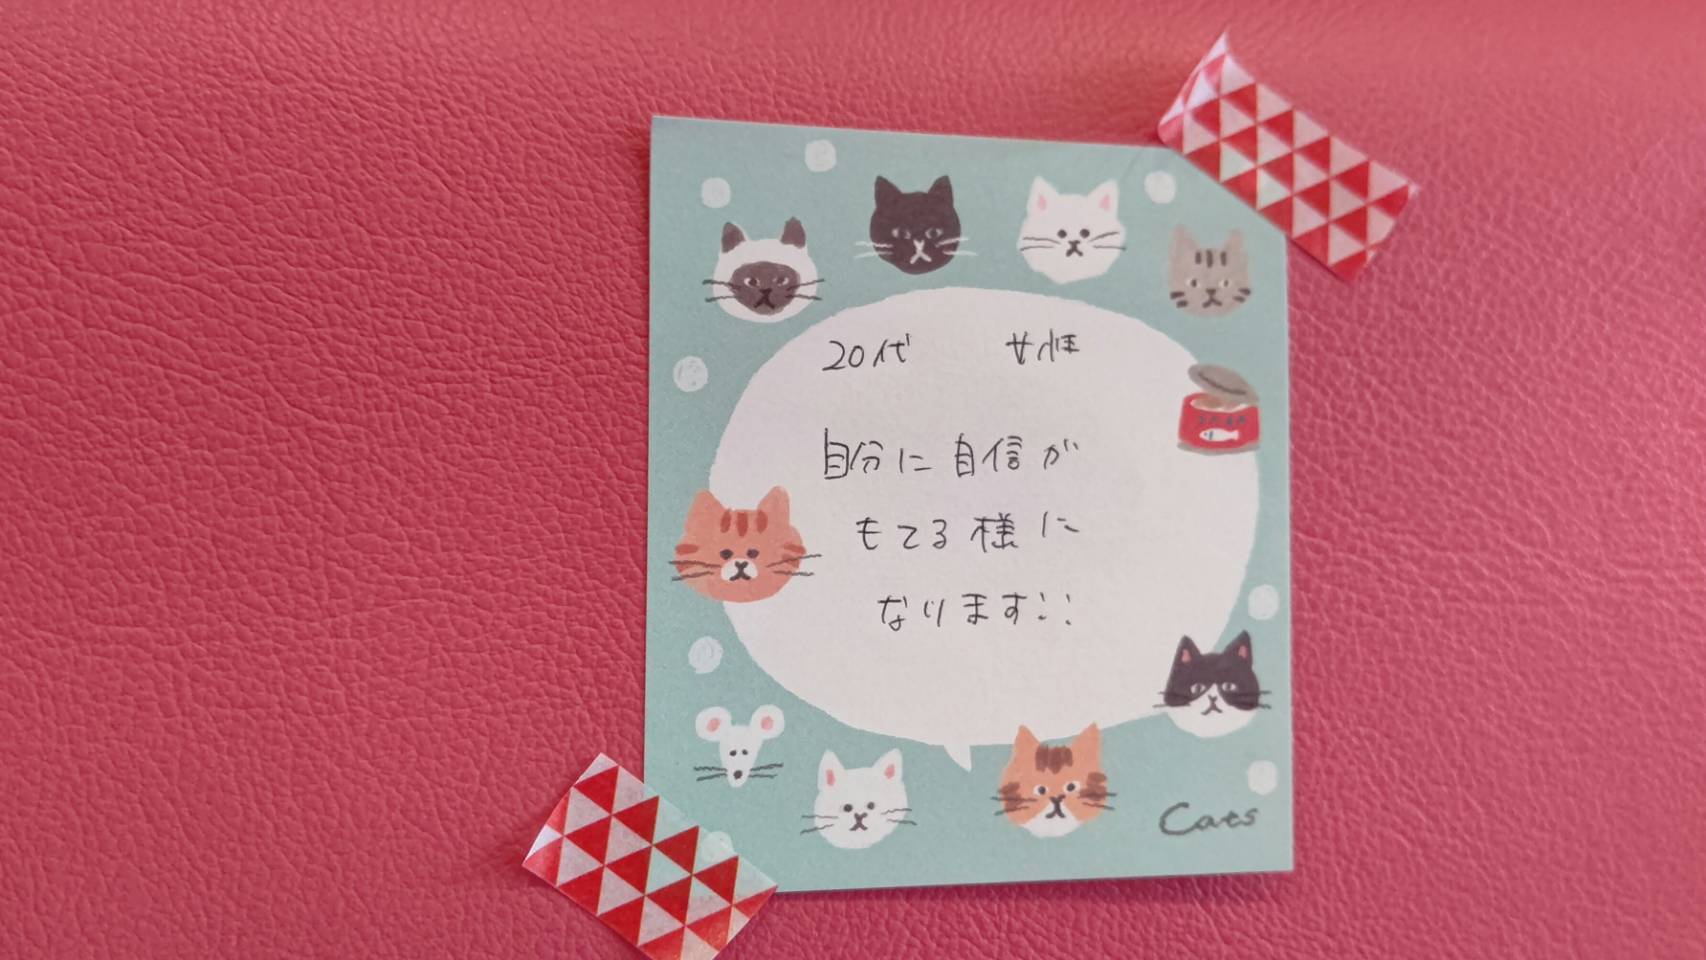 20代 女性
自分に自信が
もてる様に
なります!!
Cats